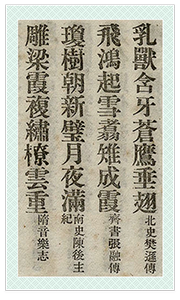 乳獸含牙蒼鷹垂翅 北史樊遜傳
飛鴻起雪翥雉成霞 齊書張融傳
瓊樹朝新璧月夜滿 南史陳後主紀
雕梁霞複繡橑雲重 隋音樂志